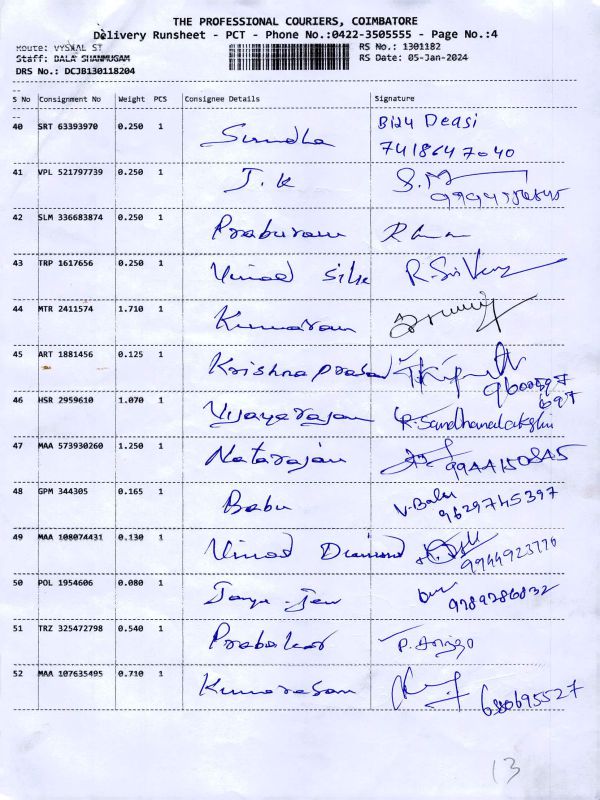 THE PROFESSIONAL COURIERS, COIMBATORE
Delivery Runsheet - PCT - Phone No.:0422-3505555 - Page No.:4
Route: VYSYAL ST RS No.: 1301182
Staff: BALA SHANMUGAM RS Date: 05-Jan-2024
DRS No.: DCJB130118204
S No Consignment No Weight PCS Consignee Details Signature
40 SRT 63393970 0.250 1 Deasi
7418647040
41 VPL 521797739 0.250 1 J.K S.M
42 SLM 336683874 0.250 1 Praburam
43 TRP 1617656 0.250 1 Vinod Silk
44 MTR 2411574 1.710 1 Kumaran
45 ART 1881456 0.125 1 Krishna prasad
9600597
697
46 HSR 2959610 1.070 1 Vijayarajan R. Sandhanalakshmi
47 MAA 573930260 1.250 1 Natarajan 99AA1508A5
48 GPM 344305 0.165 1 Babu V. Balu
9629745397
49 MAA 108074431 0.130 1 Vinod Diamond
9944923776
50 POL 1954606 0.080 1 9789786832
51 TRZ 325472798 0.540 1 Prabakar P. Arivgo
52 MAA 107635495 0.710 1 Kumaresan
680695527
13